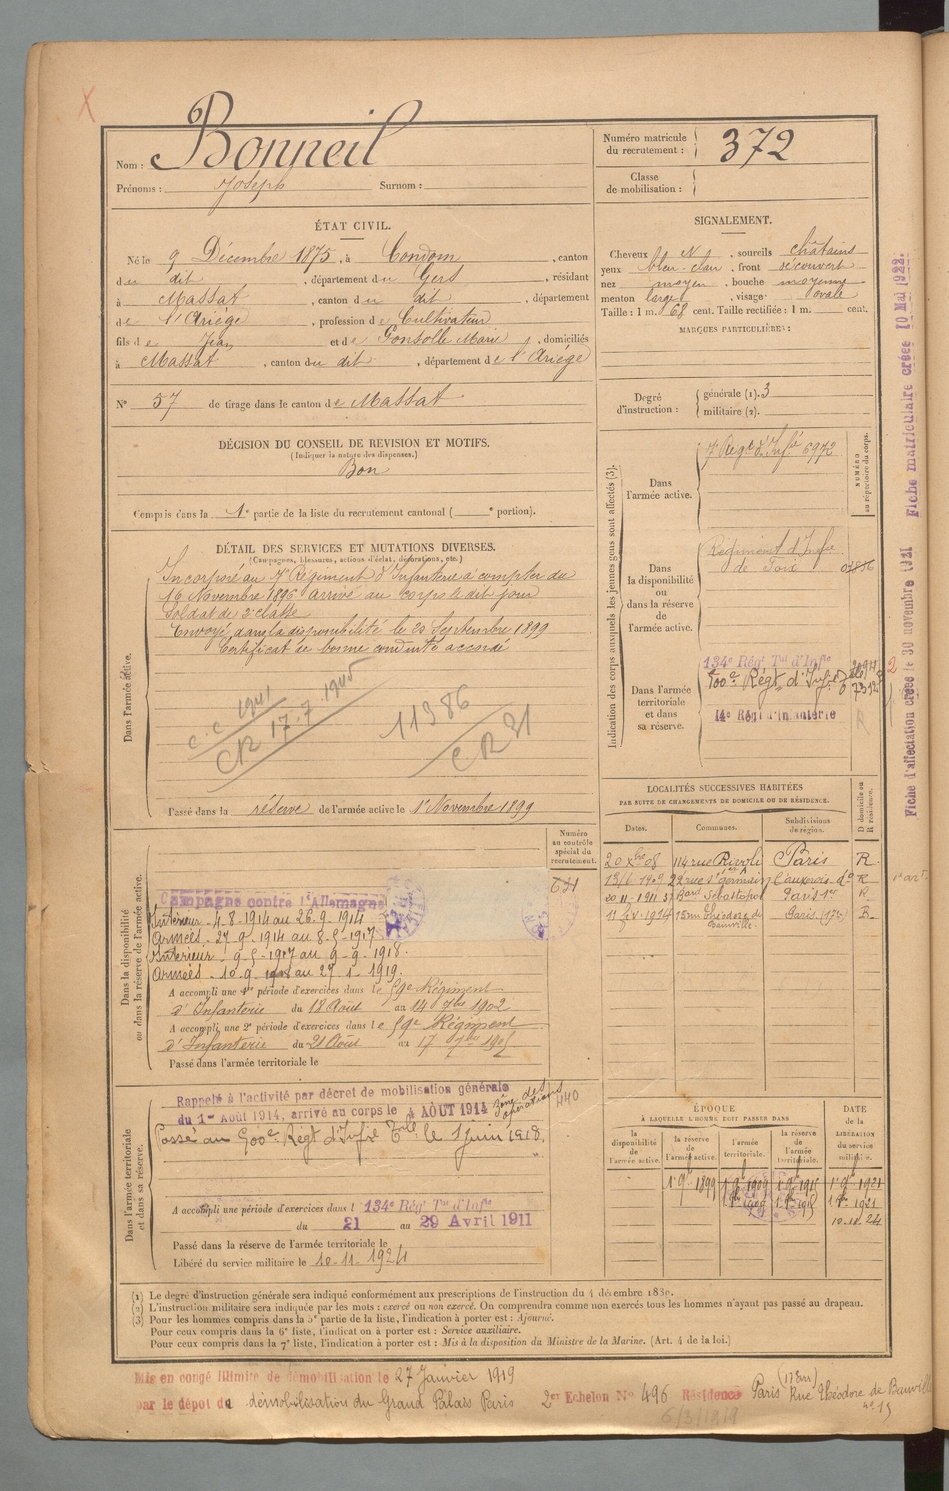 Nom : Bonneil
Prénoms : Joseph Surnom :
Numéro matricule du recrutement : 372
Classe de mobilisation :
ÉTAT CIVIL.
Né le 9 Décembre 1875, à Condom, canton
du dit, département du Gers, résidant
à Massat, canton du dit, département
de l'Ariège, profession de Cultivateur
fils de Jean et de Gonsolle Marie, domiciliés
à Massat, canton du dit, département de l'Ariège
N° 57 de tirage dans le canton de Massat
SIGNALEMENT.
Cheveux N, sourcils châtains
yeux bleu-clair, front découvert
nez moyen, bouche moyenne
menton large, visage ovale
Taille : 1 m. 68 cent. Taille rectifiée : 1 m. cent.
MARQUES PARTICULIÈRES :
Degré d'instruction : générale (1). 3
militaire (2).
DÉCISION DU CONSEIL DE REVISION ET MOTIFS.
(Indiquer la nature des dispenses.)
Bon
Compris dans la 1e partie de la liste du recrutement cantonal ( e portion).
DÉTAIL DES SERVICES ET MUTATIONS DIVERSES.
(Campagnes, blessures, actions d'éclat, décorations, etc.)
Dans l'armée active.
Incorporé au 7e Régiment d'Infanterie à compter du
16 Novembre 1896 arrivé au corps le dit jour
Soldat de 2e classe
Envoyé dans la disponibilité le 20 Septembre 1899
Certificat de bonne conduite accordé
C.C 1941
CR 17.7.1945
11386
CR 21
Passé dans la réserve de l'armée active le 1er Novembre 1899
Indication des corps auxquels les jeunes gens sont affectés (3).
NUMÉRO au répertoire du corps.
Dans l'armée active.
7e Régt d'Infie 6972
Dans la disponibilité ou dans la réserve de l'armée active.
Régiment d'Infie
de Foix
Dans l'armée territoriale et dans sa réserve.
134e Rég' Ter d'Infie
500e Régt d'Inf.
14e Rég' d'Infanterie
Fiche d'affectation créée le 30 novembre 1921 Fiche matriculaire créée 10 Mai 1922.
LOCALITÉS SUCCESSIVES HABITÉES
PAR SUITE DE CHANGEMENTS DE DOMICILE OU DE RÉSIDENCE.
Dates. Communes. Subdivisions de région. D domicile ou R résidence.
20 Xbre 08 114 rue Rivoli Paris R.
13/6 1909 22 rue St Germain l'auxerois do R
20 11 1911 Bard Sébastopol Paris 1er R.
1914 15 rue Théodore de Banville. Paris (17e) R.
Numéro au contrôle spécial du recrutement.
Dans la disponibilité ou dans la réserve de l'armée active.
Campagne contre l'Allemagne
Intérieur - 4-8-1914 au 26-9-1914
Armées - 27-9-1914 au 8-5-1917
Intérieur - 9-5-1917 au 9-9-1918.
Armées - 10-9-1918 au 27-1-1919.
A accompli une 1re période d'exercices dans le 59e Régiment
d'Infanterie du 18 Août au 14 7bre 1902
A accompli une 2e période d'exercices dans le 59e Régiment
d'Infanterie du 21 Août au 17 7bre 1905
Passé dans l'armée territoriale le
Dans l'armée territoriale et dans sa réserve.
Rappelé à l'activité par décret de mobilisation générale
du 1er Août 1914, arrivé au corps le 4 AOÛT 1914
Zône des opérations
440
Passé au 500e Régt d'Infie Torle le 1 Juin 1918.
A accompli une période d'exercices dans l 134e Rég' Ter d'Infie
du 21 au 29 Avril 1911
Passé dans la réserve de l'armée territoriale le
Libéré du service militaire le 10-11-1924
ÉPOQUE
À LAQUELLE L'HOMME DOIT PASSER DANS
la disponibilité de l'armée active. la réserve de l'armée active. l'armée territoriale. la réserve de l'armée territoriale.
DATE de la LIBÉRATION du service militaire.
1er 9bre 1899 1er 9bre 1909 1er 9bre 1915 1er 9bre 1921
1er 9bre 1909 1er 9bre 1915 1er 9bre 1921
10-11-24
(1) Le degré d'instruction générale sera indiqué conformément aux prescriptions de l'instruction du 4 décembre 1830.
(2) L'instruction militaire sera indiquée par les mots : exercé ou non exercé. On comprendra comme non exercés tous les hommes n'ayant pas passé au drapeau.
(3) Pour les hommes compris dans la 5e partie de la liste, l'indication à porter est : Ajourné.
Pour ceux compris dans la 6e liste, l'indication à porter est : Service auxiliaire.
Pour ceux compris dans la 7e liste, l'indication à porter est : Mis à la disposition du Ministre de la Marine. (Art. 4 de la loi.)
Mis en congé illimité de démobilisation le 27 Janvier 1919
par le dépôt de démobilisation du Grand Palais Paris 2er Echelon N° 496 Résidence Paris (17em) Rue Théodore de Banville
n° 15